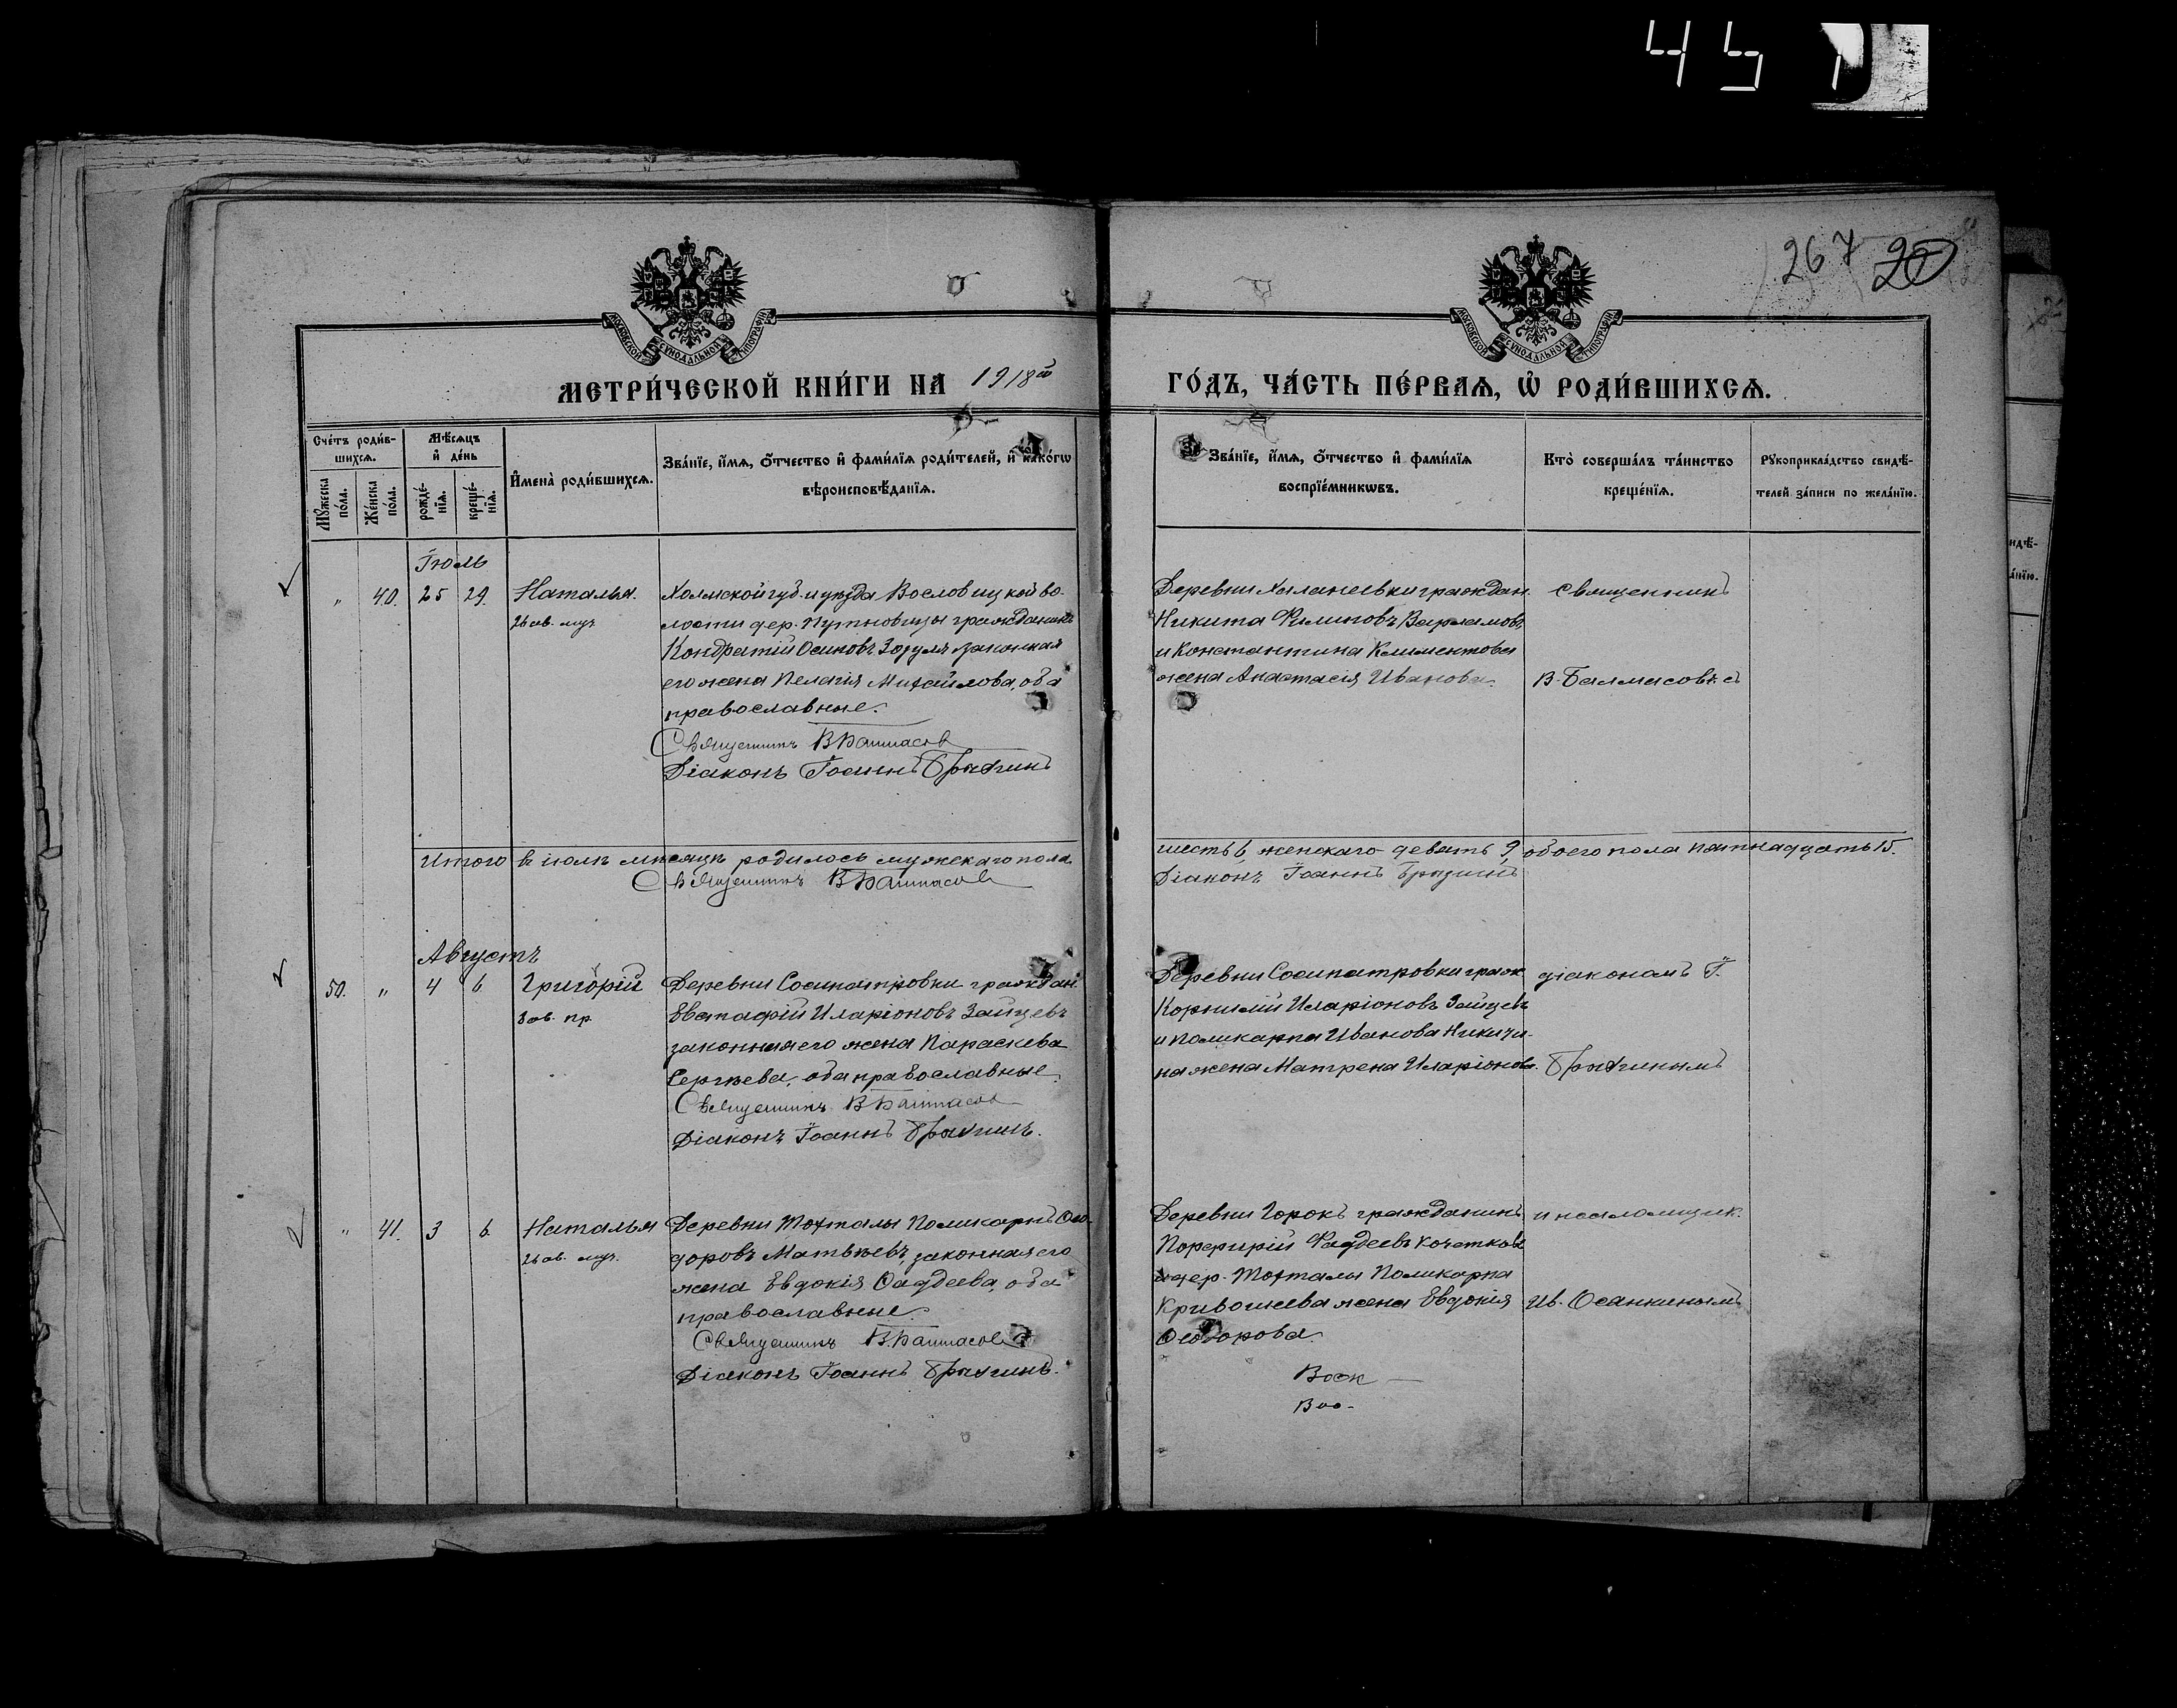 45
267 20
МОСКОВСКОЙ СУНОДАЛЬНОЙ ТИПОГРАФІИ
МОСКОВСКОЙ СУНОДАЛЬНОЙ ТИПОГРАФІИ
МЕТРИ́ЧЕСКОЙ КНИ́ГИ НА 1918й ГО́ДЪ, ЧА́СТЬ ПЕ́РВАѦ, Ѽ РОДИ́ВШИХСѦ.
Сче́тъ роди́в-
шихсѧ.
Мꙋ́жеска по́ла.
Же́нска по́ла.
Мѣ́сѧцъ
и҆ де́нь
рожде́-
нїѧ.
креще́-
нїѧ.
И҆мена̀ роди́вшихсѧ.
Зва́нїе, и҆́мѧ, ѻ҆́тчество и҆ фами́лїѧ роди́телей, и҆ како́гѡ
вѣроисповѣ́данїѧ.
Зва́нїе, и҆́мѧ, ѻ҆́тчество и҆ фами́лїѧ
воспрїе́мникѡвъ.
Кто̀ соверша́лъ та́инство
креще́нїѧ.
Рꙋкоприкла́дство свидѣ́-
телей за́писи по жела́нїю.
Іюль
" 40. 25 29. Наталья.
26 ав. муч.
Холмской губ. и уѣзда Вословицкой во-
лости дер. Путновицы гражданинъ
Кондратій Осиповъ Зозуля законная
его жена Пелагія Михайлова, оба
православные.
Священникъ В Балмасовъ
Діаконъ Іоаннъ Брызгинъ
Деревни граждан.
Никита Филиповъ Варламовъ
и Константина Климентова
жена Анастасія Иванова.
Священникъ
В. Балмасовъ съ
Итого въ іюлѣ мѣсяцѣ родилось мужескаго пола
шесть 6, женскаго девять 9, обоего пола пятнадцать 15.
Священникъ В Балмасовъ
Діаконъ Іоаннъ Брызгинъ
Августъ
50. " 4 6 Григорій
8 ав. пр.
Деревни Сосипатровки граждан.
Евстафій Иларіоновъ Зайцевъ
законная его жена Параскева
Сергѣева, оба православные.
Священникъ В Балмасовъ
Діаконъ Іоаннъ Брызгинъ.
Деревни Сосипатровки граж.
Корнилій Иларіоновъ Зайцевъ
и Поликарпа Иванова Никити-
на жена Матрена Иларіонова.
діакономъ І.
Брызгинымъ
" 41. 3 6 Наталья
26 ав. муч.
Деревни Тохталы Поликарпъ Ѳео-
доровъ Матвѣевъ, законная его
жена Евдокія Ѳаддеева, оба
православные.
Священникъ В. Балмасовъ
Діаконъ Іоаннъ Брызгинъ.
Деревни Горокъ гражданинъ
Порфирій Фаддеевъ Кочетковъ
и дер. Тохталы Поликарпа
Кривошеева жена Евдокія
Ѳеодорова.
и псаломщик.
Ив. Осанкинымъ